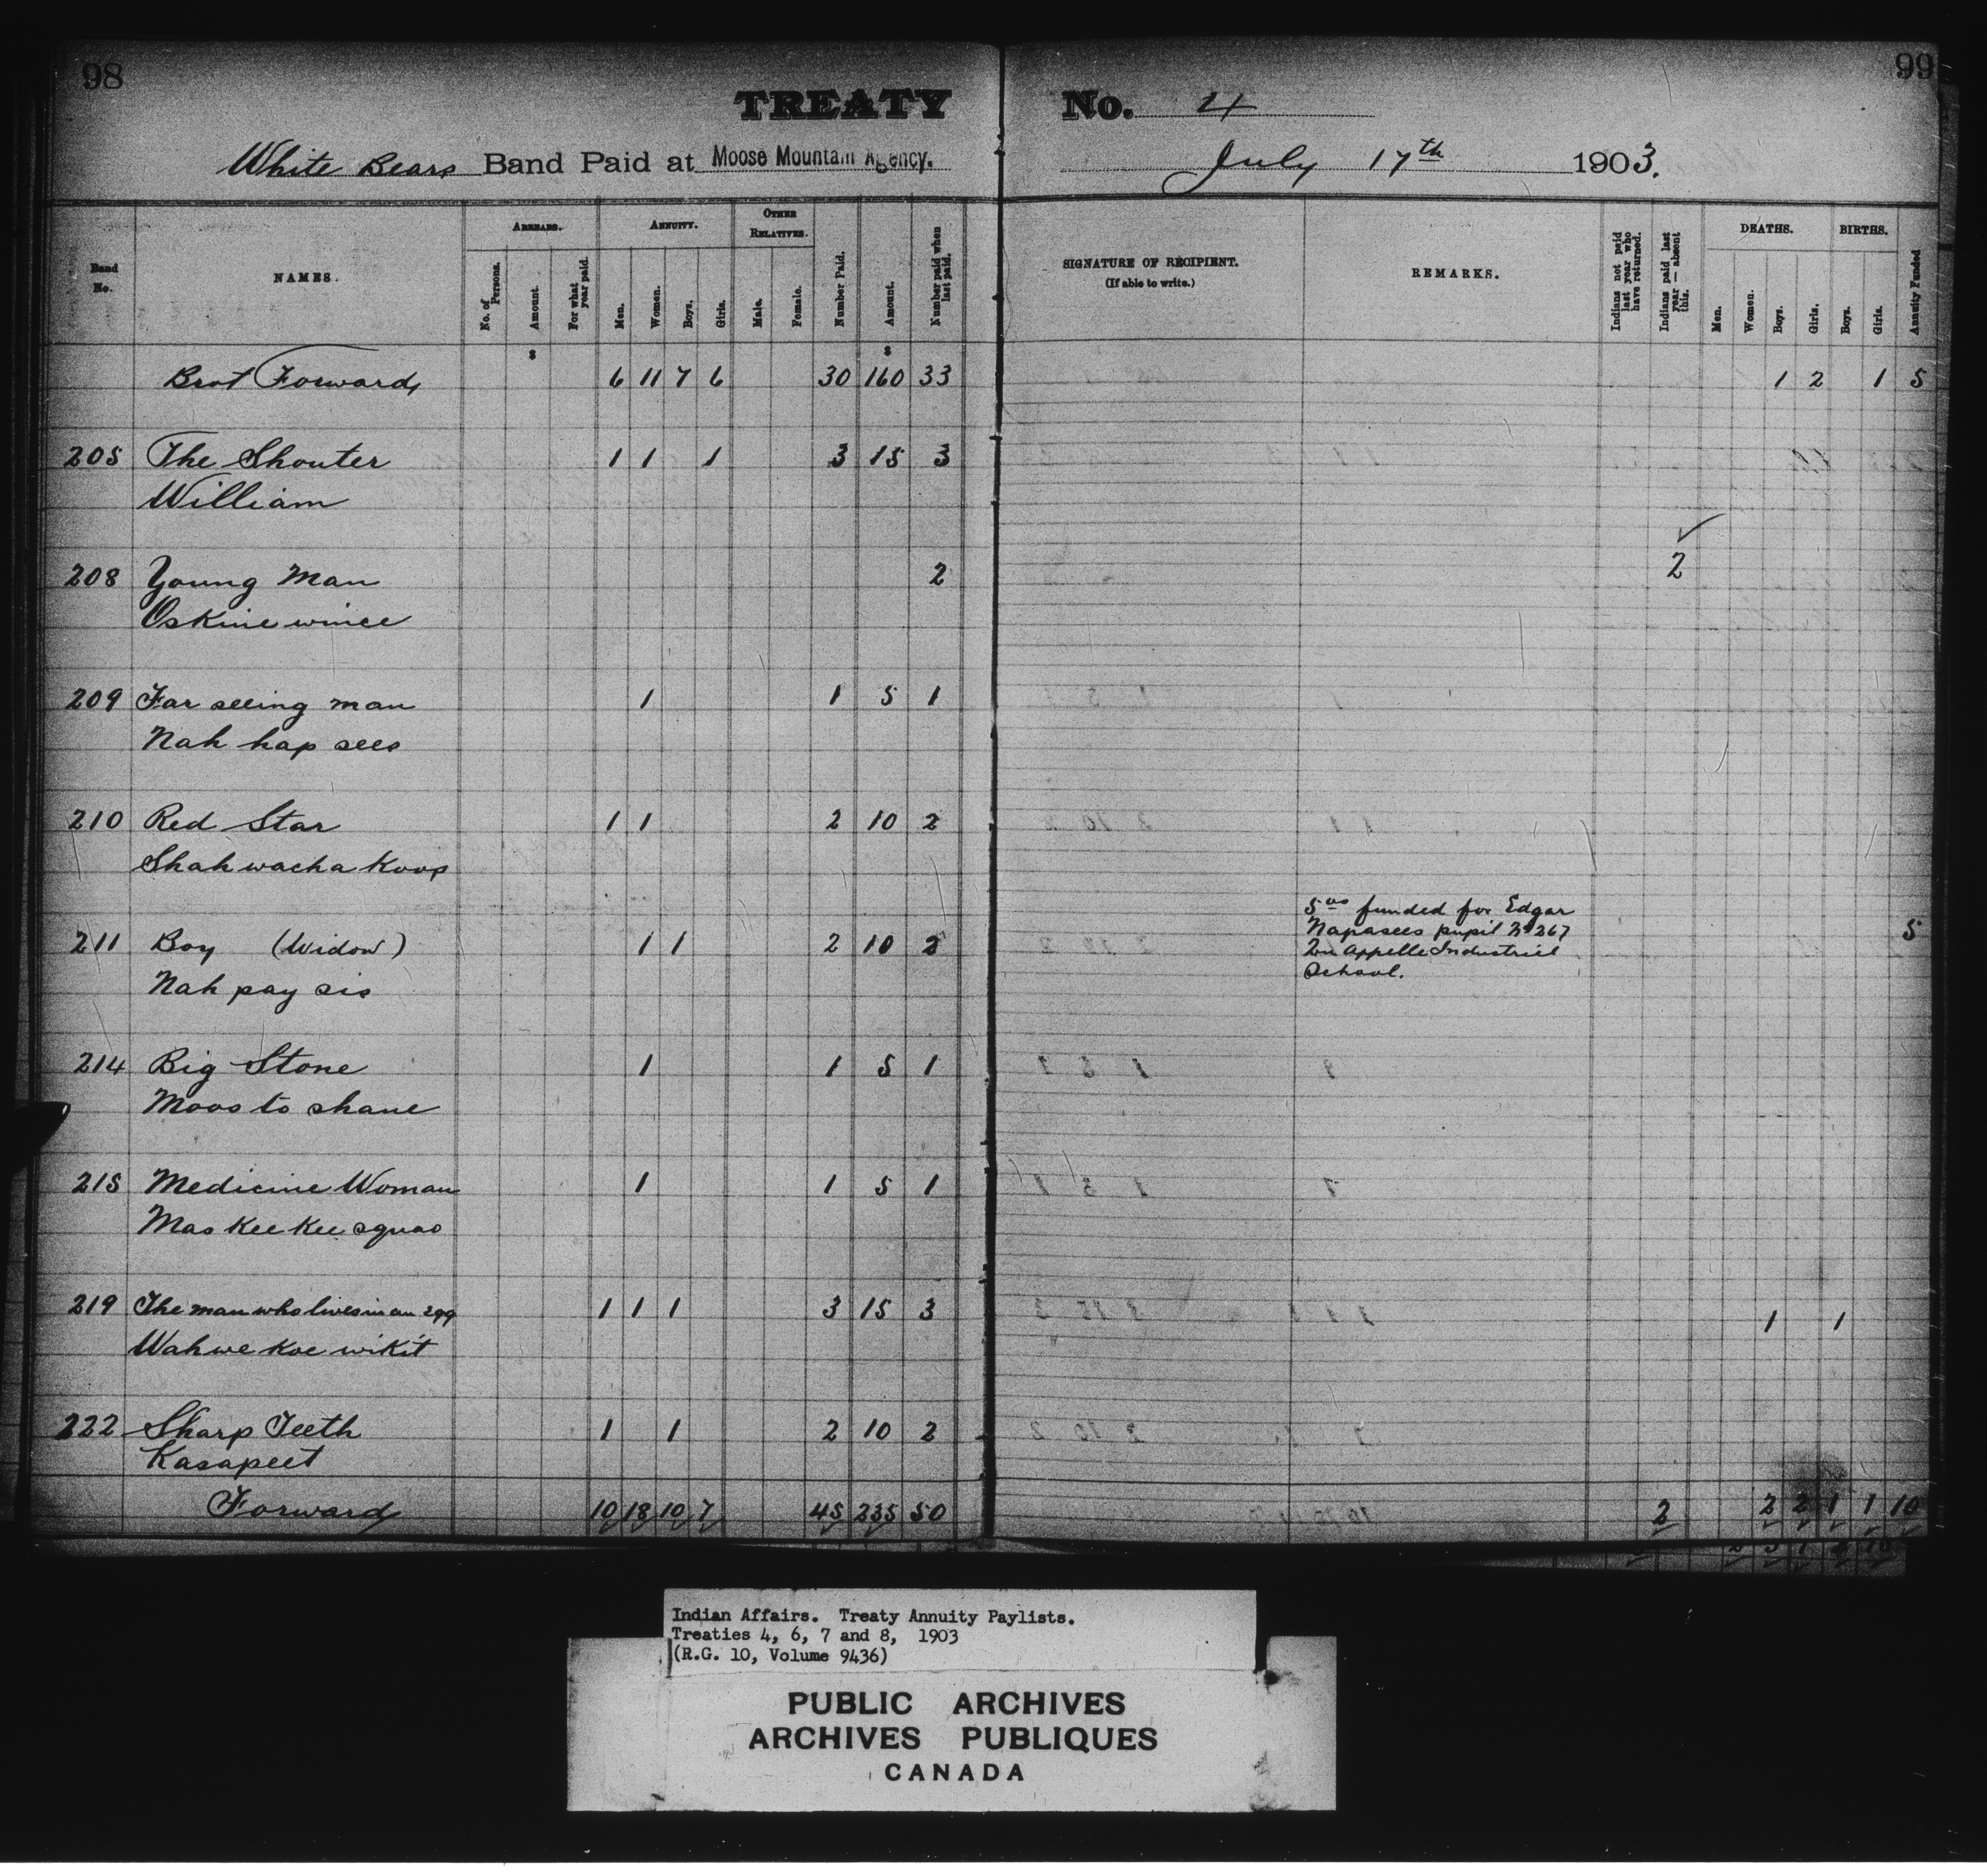 98
99
TREATY No. 4
White Bears Band Paid at Moose Mountain Agency. July 17th 1903.
Band No.
NAMES.
ARREARS.
No. of Persons.
Amount.
For what year paid.
ANNUITY.
Men.
Women.
Boys.
Girls.
OTHER RELATIVES.
Male.
Female.
Number Paid.
Amount.
Number paid when last paid.
SIGNATURE OF RECIPIENT.
(If able to write.)
REMARKS.
Indians not paid last year who have returned.
Indians paid last year — absent this.
DEATHS.
Men.
Women.
Boys.
Girls.
BIRTHS.
Boys.
Girls.
Annuity Funded
$ $
Brot Forward 6 11 7 6 30 160 33 1 2 1 5
205 The Shouter 1 1 1 3 15 3
William
208 Young Man 2 2
Oskinewince
209 Far seeing man 1 1 5 1
Nah hap sees
210 Red Star 1 1 2 10 2
Shah wacha Koop
211 Boy (Widow) 1 1 2 10 2 5
Nah pay sis
5 00 funded for Edgar
Napasees pupil No 267
Qu Appelle Industrial
School.
214 Big Stone 1 1 5 1
Moos to shane
215 Medicine Woman 1 1 5 1
Mas Kee Kee squao
219 The man who lives in an egg 1 1 1 3 15 3 1 1
Wahwe Koe wikit
222 Sharp Teeth 1 1 2 10 2
Kasapeet
Forward 10 18 10 7 45 235 50 2 2 2 1 1 10
Indian Affairs. Treaty Annuity Paylists.
Treaties 4, 6, 7 and 8, 1903
(R.G. 10, Volume 9436)
PUBLIC ARCHIVES
ARCHIVES PUBLIQUES
CANADA